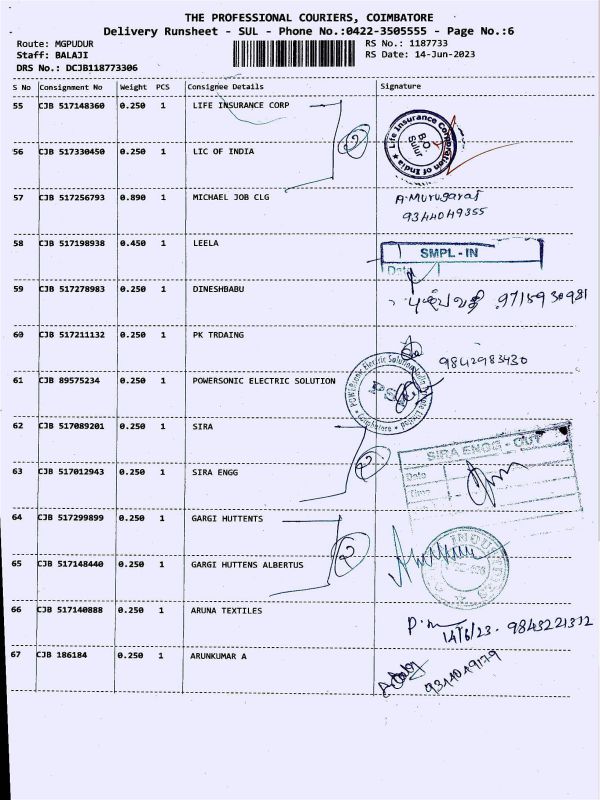 THE PROFESSIONAL COURIERS, COIMBATORE
Delivery Runsheet - SUL - Phone No.:0422-3505555 - Page No.:6
Route: MGPUDUR
RS No.: 1187733
Staff: BALAJI
RS Date: 14-Jun-2023
DRS No.: DCJB118773306
S No Consignment No Weight PCS Consignee Details Signature
55 CJB 517148360 0.250 1 LIFE INSURANCE CORP
2
Life Insurance Corporation of India
B.O.
Sulur
56 CJB 517330450 0.250 1 LIC OF INDIA
57 CJB 517256793 0.890 1 MICHAEL JOB CLG
A.Murugaraj
9344049355
58 CJB 517198938 0.450 1 LEELA
SMPL - IN
Date
59 CJB 517278983 0.250 1 DINESHBABU
9715930981
60 CJB 517211132 0.250 1 PK TRDAING
9842983430
61 CJB 89575234 0.250 1 POWERSONIC ELECTRIC SOLUTION
62 CJB 517089201 0.250 1 SIRA
2
SIRA ENGG - OUT
Date
Time
63 CJB 517012943 0.250 1 SIRA ENGG
64 CJB 517299899 0.250 1 GARGI HUTTENTS
2
65 CJB 517148440 0.250 1 GARGI HUTTENS ALBERTUS
66 CJB 517140888 0.250 1 ARUNA TEXTILES
14/6/23. 9843221312
67 CJB 186184 0.250 1 ARUNKUMAR A